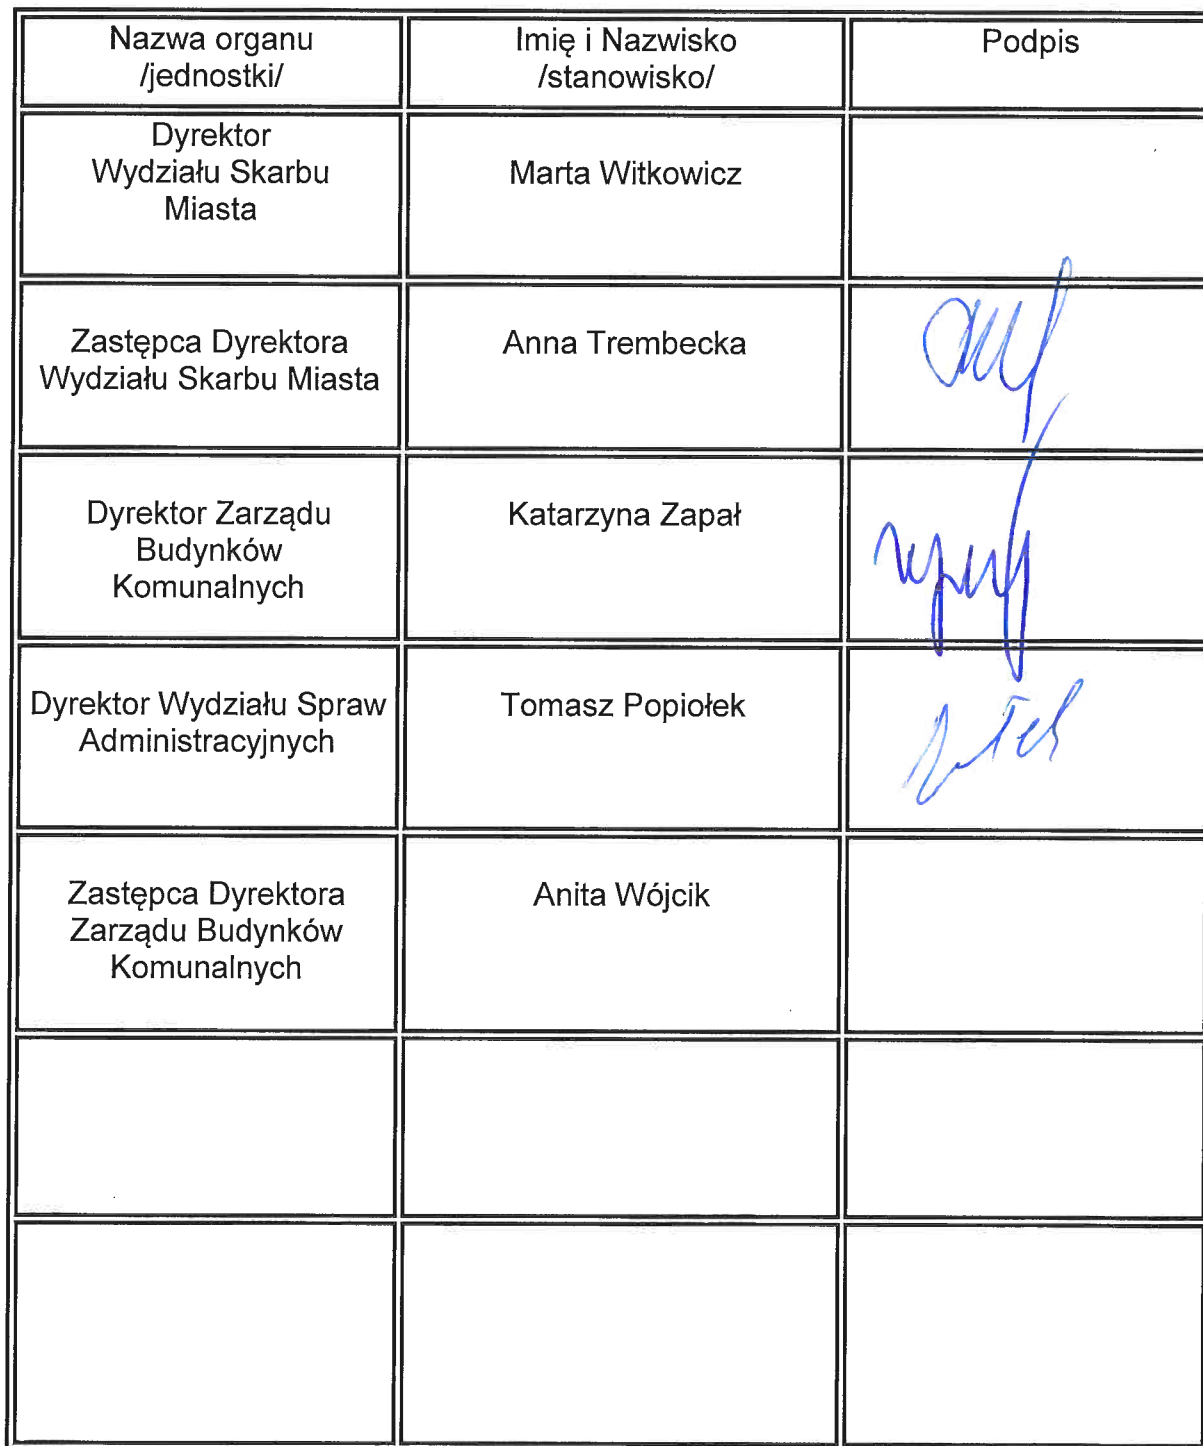 Nazwa organu
/jednostki/
Imię i Nazwisko
/stanowisko/
Podpis
Dyrektor
Wydziału Skarbu
Miasta
Marta Witkowicz
Zastępca Dyrektora
Wydziału Skarbu Miasta
Anna Trembecka
Dyrektor Zarządu
Budynków
Komunalnych
Katarzyna Zapał
Dyrektor Wydziału Spraw
Administracyjnych
Tomasz Popiołek
Zastępca Dyrektora
Zarządu Budynków
Komunalnych
Anita Wójcik